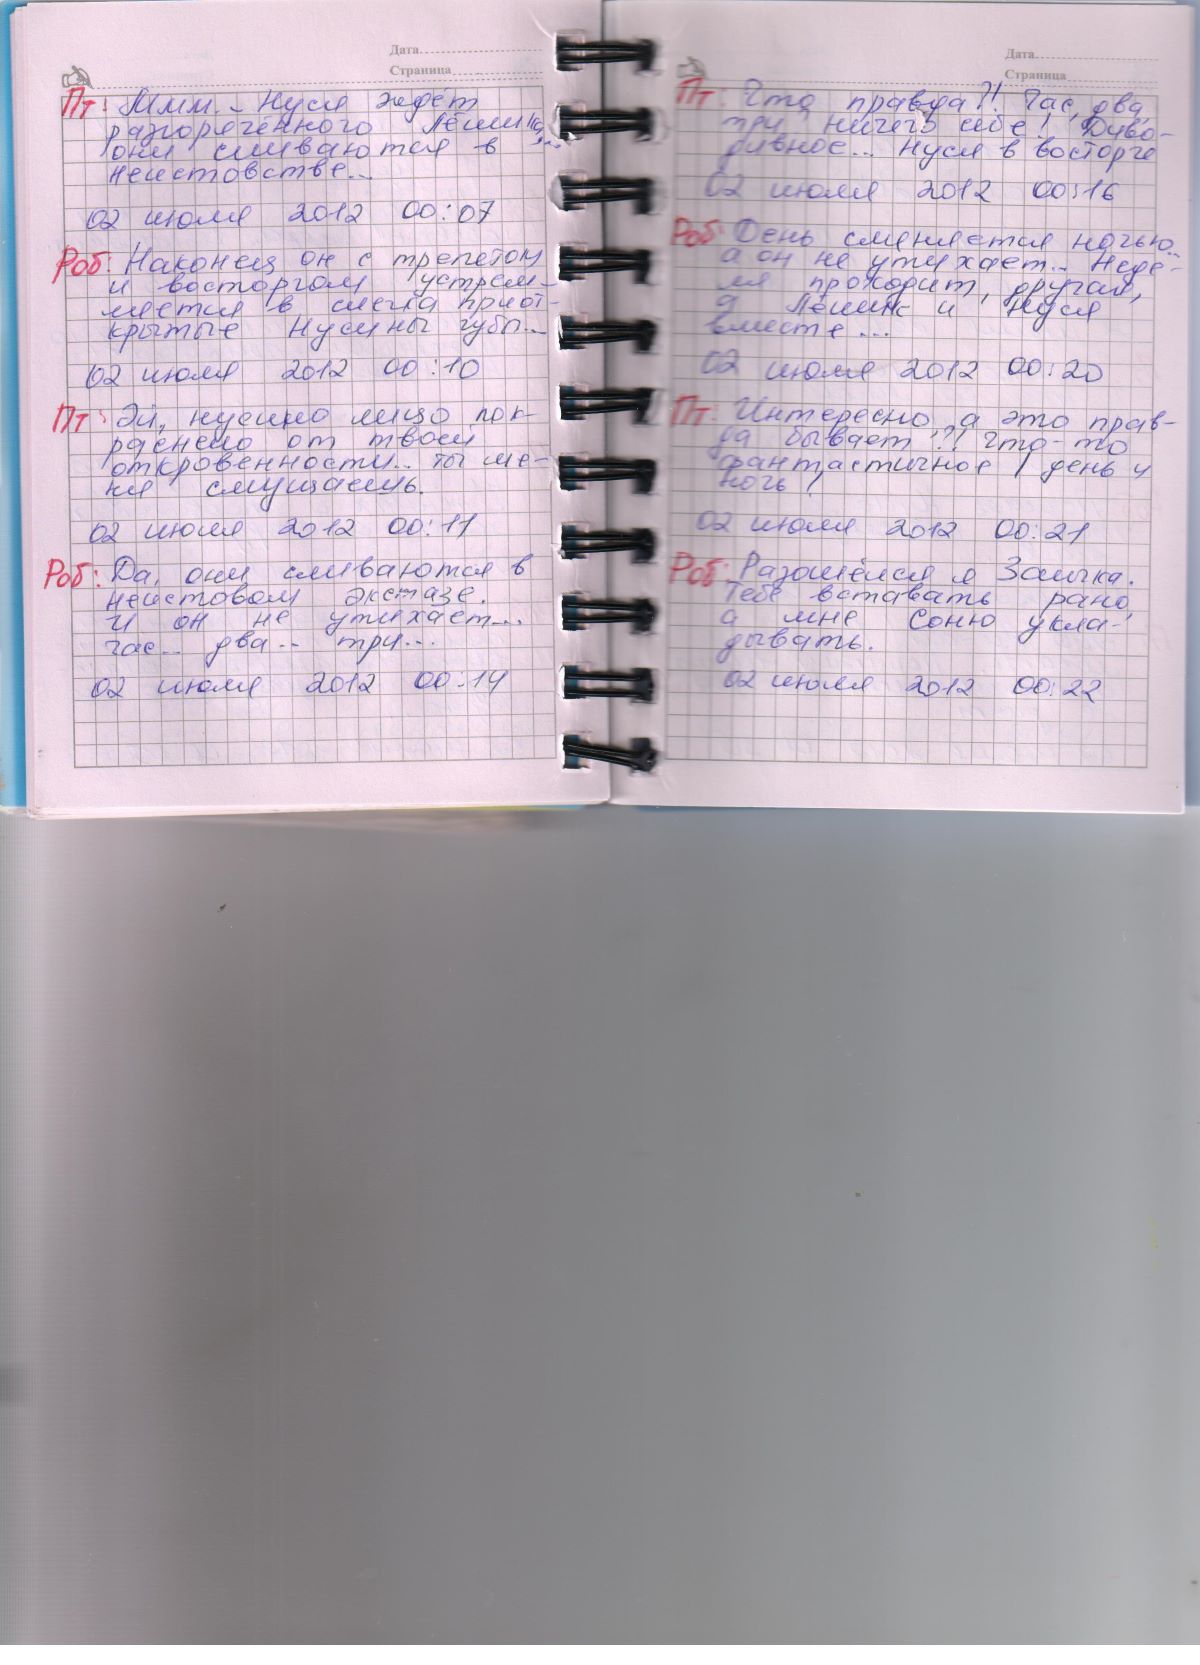 Дата
Страница
Пт: Ммм.. Нуся ждёт
разгорячённого Лёшика,
они сливаются в
неистовстве...
02 июля 2012 00:07
Роб: Наконец он с трепетом
и восторгом устрем-
ляется в слегка приот-
крытые Нусины губы...
02 июля 2012 00:10
Пт: Эй, нусино лицо пок-
раснело от твоей
откровенности.. ты ме-
ня смущаешь.
02 июля 2012 00:11
Роб: Да, они сливаются в
неистовом экстазе.
И он не утихает...
час... два... три...
02 июля 2012 00:14
Дата
Страница
Пт: Что правда?! Час, два,
три, ничего себе! Диво-
дивное... Нуся в восторге
02 июля 2012 00:16
Роб: День сменяется ночью...
а он не утихает... Неде-
ля проходит, другая,
а Лёшик и Нуся
вместе...
02 июля 2012 00:20
Пт: Интересно, а это прав-
да бывает?!! Что-то
фантастичное! день и
ночь!
02 июля 2012 00:21
Роб: Разошёлся я Заичка.
Тебе вставать рано,
а мне Соню укла-
дывать.
02 июля 2012 00:22